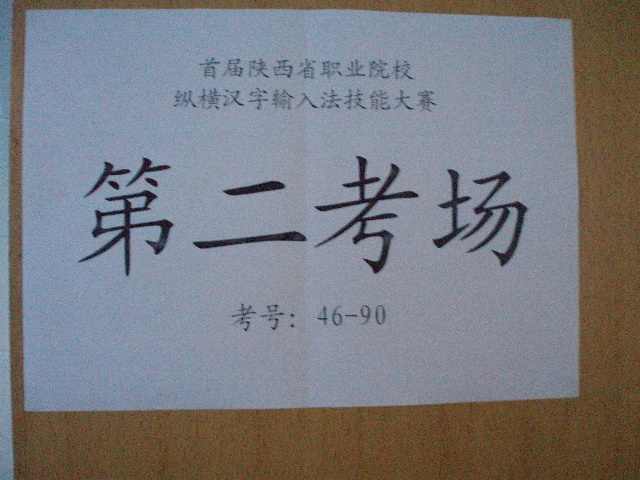 首届陕西省职业院校
纵横汉字输入法技能大赛
第二考场
考号：46-90